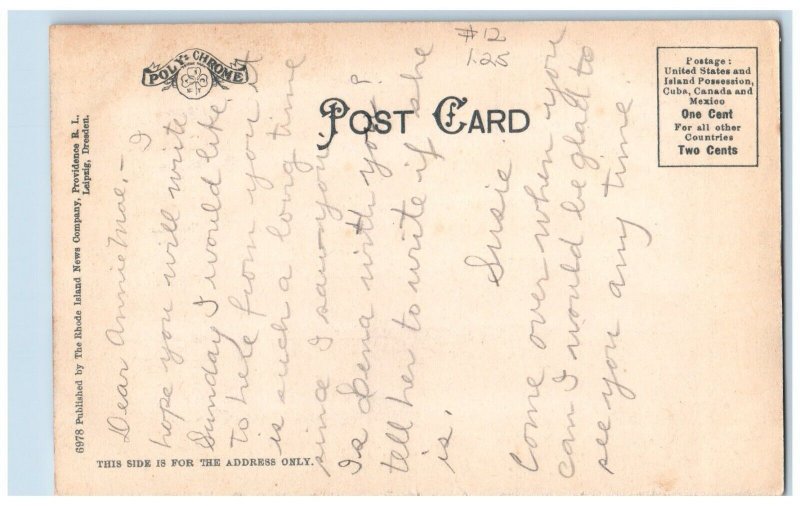 POLY-CHROME
POST CARD
#12
1.25
Postage:
United States and
Island Possession,
Cuba, Canada and
Mexico
One Cent
For all other
Countries
Two Cents
6978 Published by The Rhode Island News Company, Providence R. I.,
Leipzig, Dresden.
THIS SIDE IS FOR THE ADDRESS ONLY.
Dear Annie Mae,- I
hope you will write
Sunday I would like
to hele from you it
is such a long time
since I saw you.
Is Lena with you?
tell her to write if she
is.
Susie.
Come over when you
can I would be glad to
see you any time